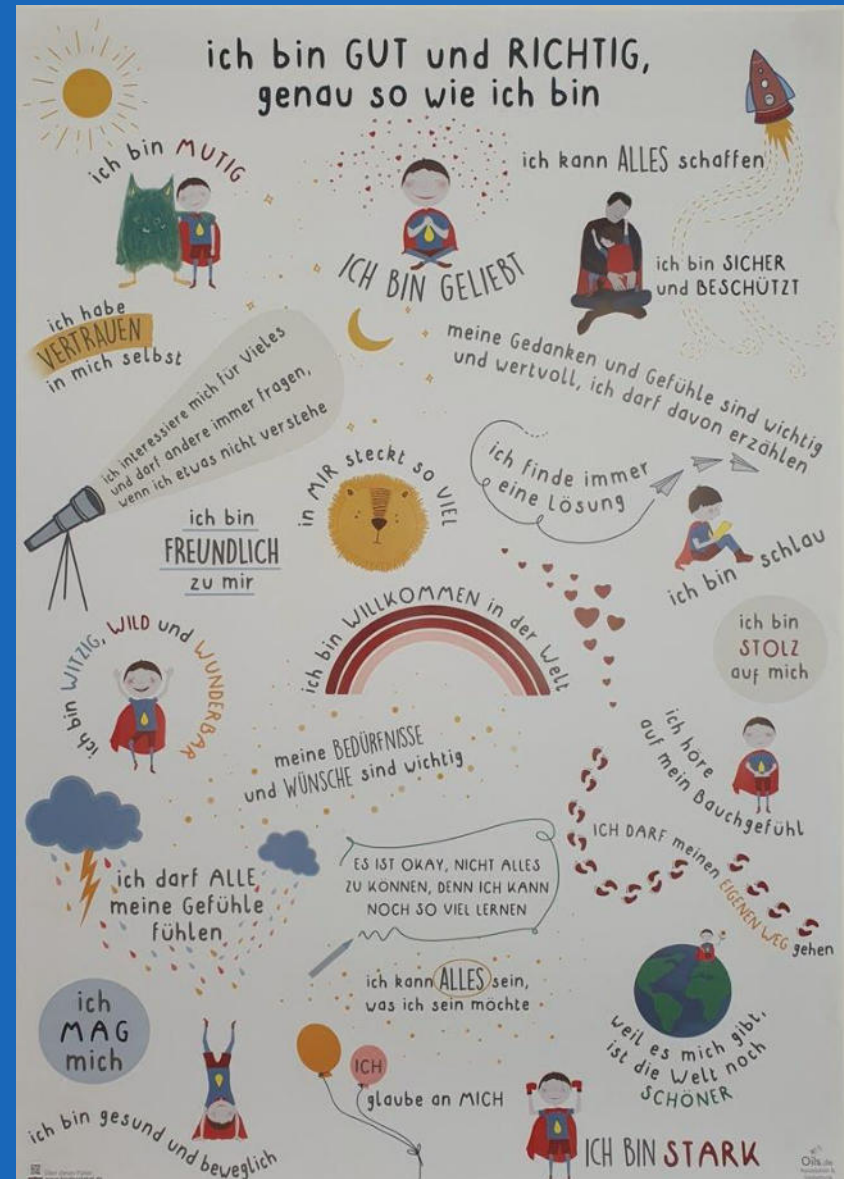 ich bin GUT und RICHTIG,
genau so wie ich bin
ich bin MUTIG
ICH BIN GELIEBT
ich kann ALLES schaffen
ich bin SICHER
und BESCHÜTZT
ich habe
VERTRAUEN
in mich selbst
ich interessiere mich für Vieles
und darf andere immer fragen,
wenn ich etwas nicht verstehe
meine Gedanken und Gefühle sind wichtig
und wertvoll, ich darf davon erzählen
ich bin
FREUNDLICH
zu mir
in MIR steckt so VIEL
ich finde immer
eine Lösung
ich bin schlau
ich bin WITZIG, WILD und WUNDERBAR
ich bin WILLKOMMEN in der Welt
ich bin
STOLZ
auf mich
meine BEDÜRFNISSE
und WÜNSCHE sind wichtig
ich höre
auf mein Bauchgefühl
ich darf ALLE
meine Gefühle
fühlen
ES IST OKAY, NICHT ALLES
ZU KÖNNEN, DENN ICH KANN
NOCH SO VIEL LERNEN
ICH DARF meinen EIGENEN WEG gehen
ich
MAG
mich
ich kann ALLES sein,
was ich sein möchte
weil es mich gibt,
ist die Welt noch
SCHÖNER
ich bin gesund und beweglich
ICH
glaube an MICH
ICH BIN STARK
Oils.de